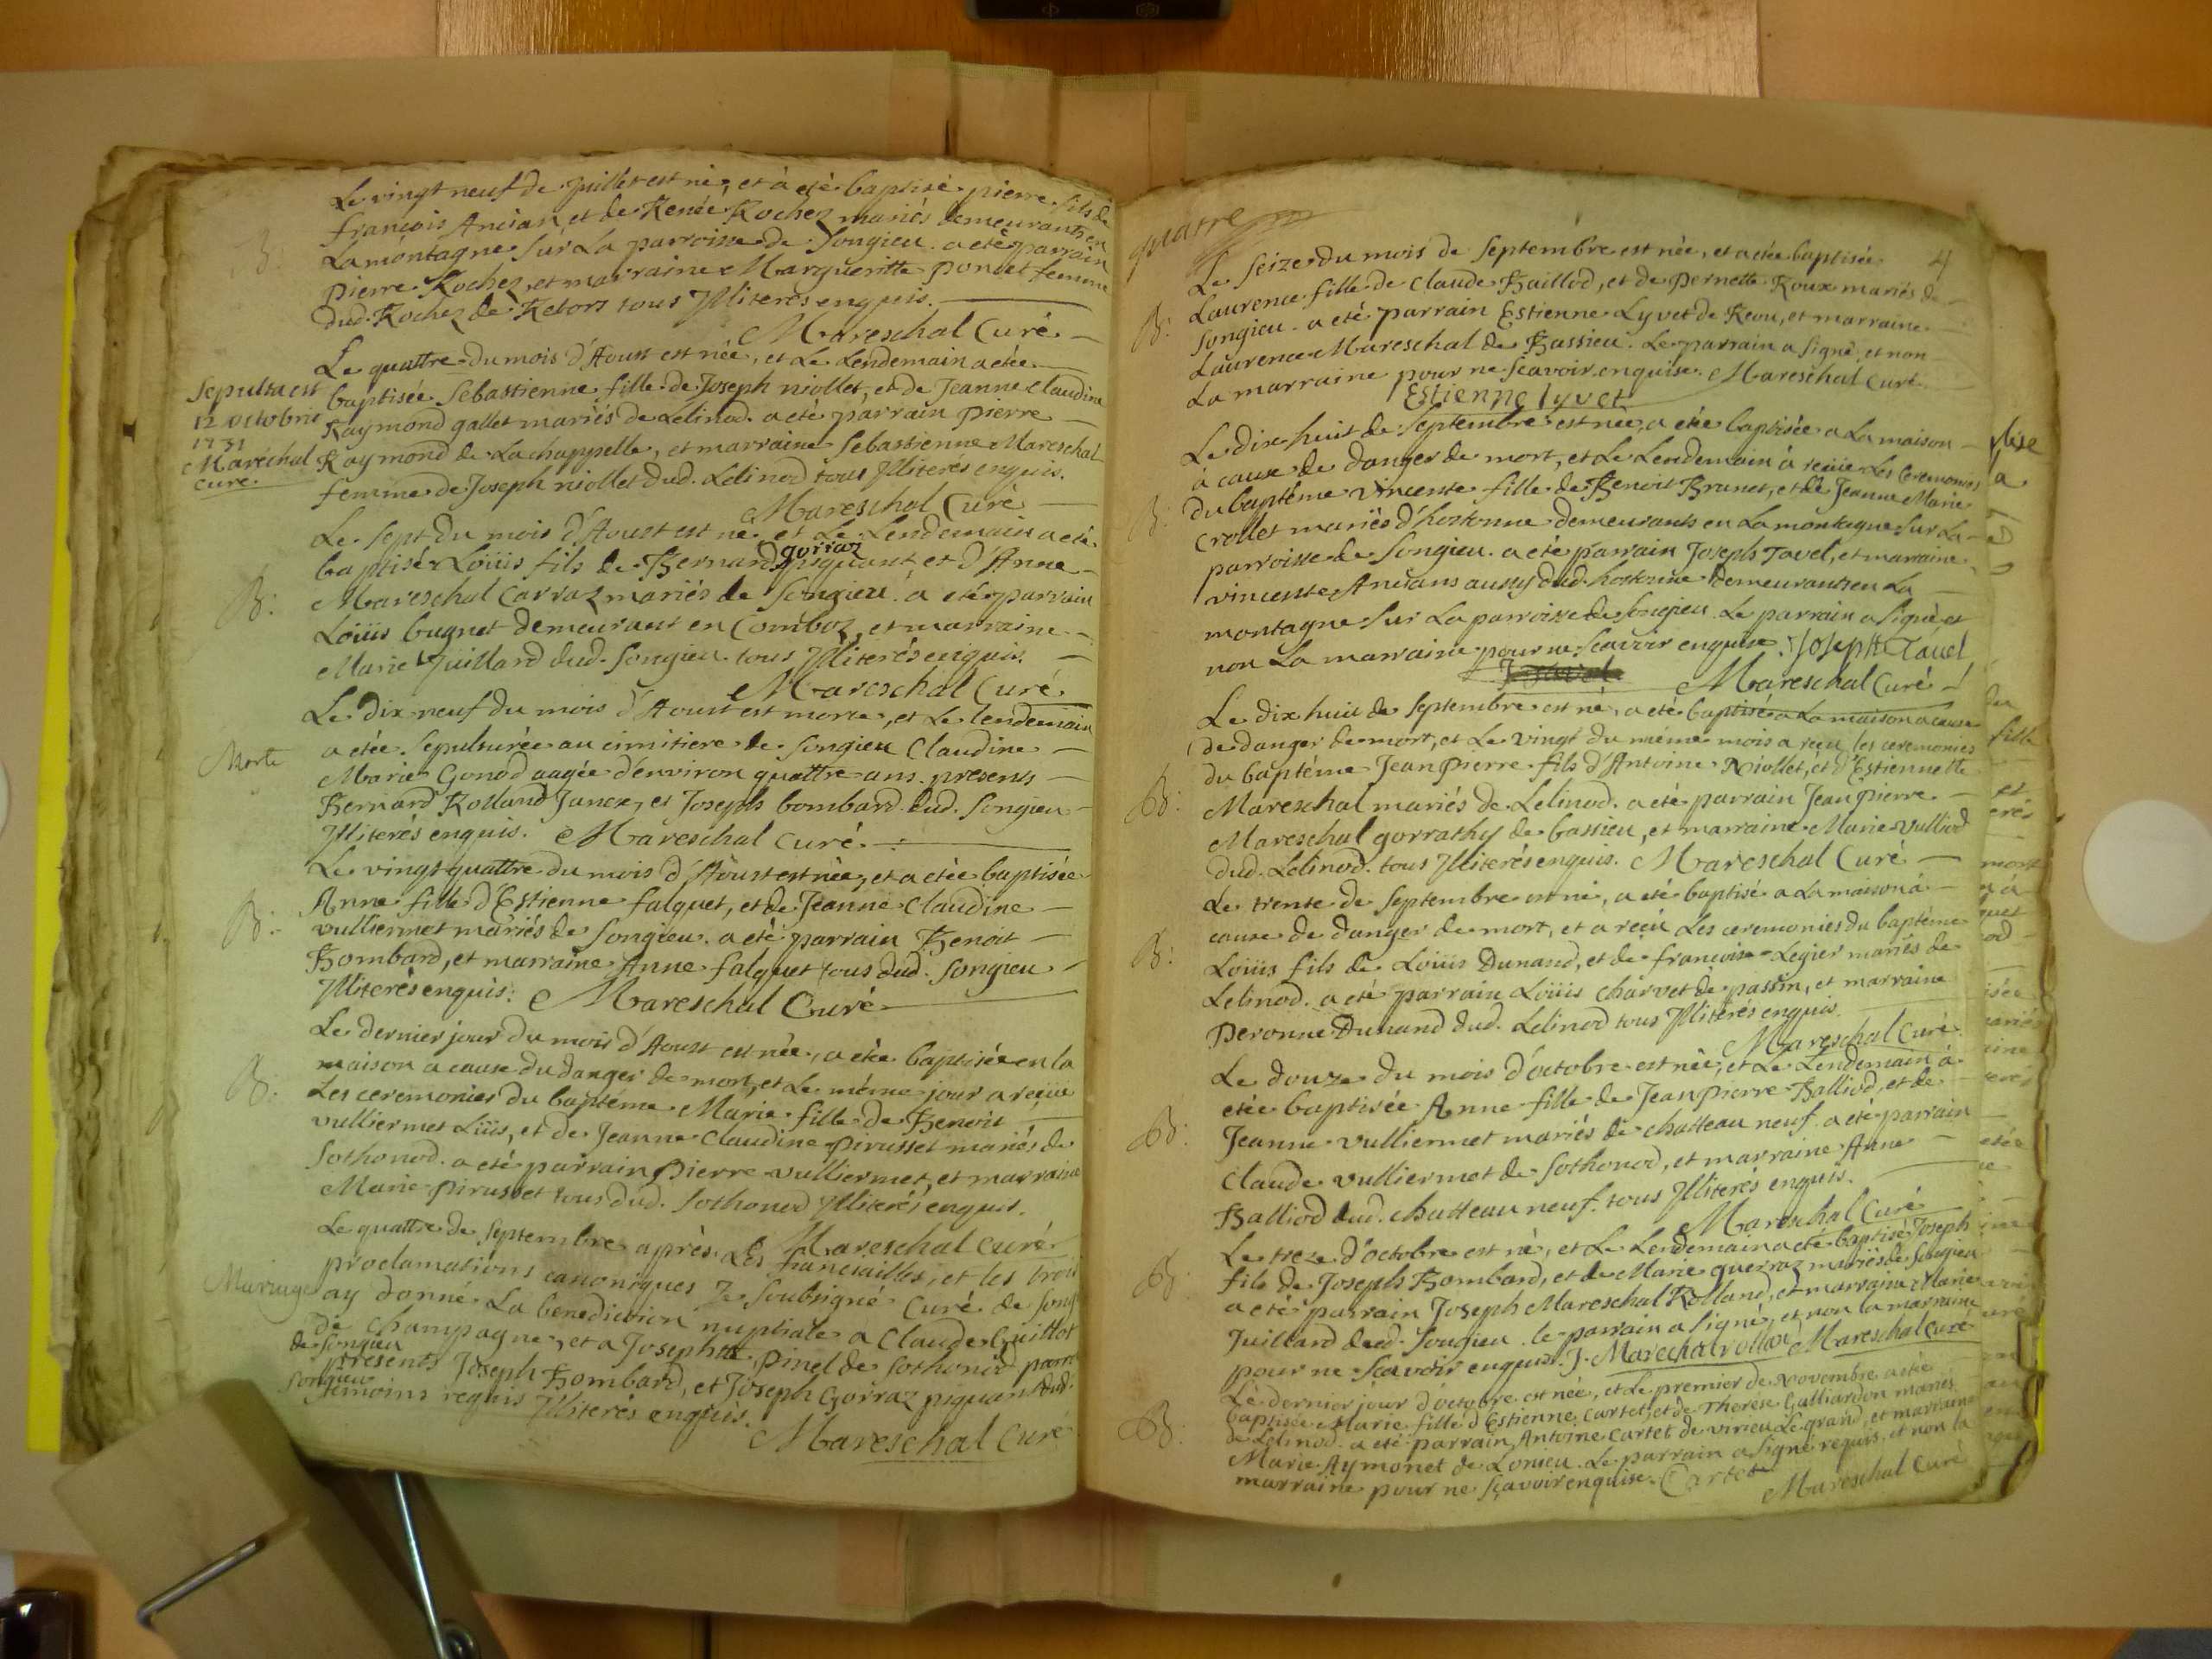 Le vingt neuf de Juillet est né, et à eté baptisé pierre fils de
françois Ancian, et de Renée Rochez mariés demeurants en
La montagne sur La parroisse de Songieu. a eté parrain
pierre Rochez, et marraine Margueritte poncet femme
dud. Rochez de Retors tous Jlliterés enquis.
Mareschal Curé
B:
Le quattre du mois d'Aoust est née, et Le Lendemain a etée
baptisée Sebastienne fille de Joseph niollet, et de Jeanne claudine
Raymond gallet mariés de Lelinod. a eté parrain pierre
Raymond de La chappelle, et marraine Sebastienne Mareschal
femme de Joseph niollet dud. Lelinod tous Jlliterés enquis.
Mareschal Curé
Sepulta est
12 octobris
1731
Maréchal
curé.
Le sept du mois d'Aoust est né et Le Lendemain a eté
gorraz
baptisé Loüis fils de Bernard piquant et d'Anne
Mareschal Carraz mariés de Songieu. a eté parrain
Loüis bugnet demeurant en Comboz, et marraine
Marie Juillard dud. Songieu tous Jlliterés enquis.
Mareschal Curé
B:
Le dix neuf du mois d'Aoust est morte, et Le lendemain
a etée sepulturée au cimitiere de Songieu Claudine
Marie Gonod aagée d'environ quattre ans. presents
Bernard Rolland Janex, et Joseph bombard dud. Songieu
Jlliterés enquis. Mareschal Curé
Morte
Le vingt quattre du mois d'Aoust est née, et a etée baptisée
Anne fille d'Estienne falquet, et de Jeanne Claudine
vulliermet mariés de Songieu. a eté parrain Benoit
Bombard, et marraine Anne falquet tous dud. Songieu
Jlliterés enquis: Mareschal Curé
B:
Le dernier jour du mois d'Aoust est née, a etée baptisée en la
maison a cause du danger de mort, et Le même jour a reçüe
Les ceremonies du baptême Marie fille de Benoit
vulliermet Liüs, et de Jeanne Claudine pirusset mariés de
Sothonod. a eté parrain pierre vulliermet, et marraine
Marie pirusset tous dud. Sothonod Jlliterés enquis.
Mareschal Curé
B:
Le quattre de septembre après Les fiancailles, et les trois
proclamations canoniques Je soubsigné curé de song
ay donné La benediction nuptiale a Claude Guillot
de champagne, et a Josephte pinel de Sothonod parr
de Songieu
presents Joseph Bombard, et Joseph Gorraz piquant dud.
Songieu
temoins requis Jlliterés enquis.
Mareschal Curé
Mariage
quatre
4
Le seize du mois de Septembre est née, et a etée baptisée
Laurence fille de Claude Baillod, et de Pernette Roux mariés de
Songieu. a eté parrain Estienne Lyvet de Reou, et marraine
Laurence Mareschal de Bassieu. Le parrain a signé, et non
La marraine pour ne scavoir enquise. Mareschal Curé.
Estienne lyvet
B:
Le dix huit de Septembre est née, a etée baptisée a La maison
à cause de danger de mort, et Le Lendemain à reçüe Les ceremonies
du baptême vincente fille de Benoit Brunet, et de Jeanne Marie
Crollet mariés d'hostonne demeurants en La montagne sur La
parroisse de Songieu. a eté parrain Joseph Tavel, et marraine
vincente Ancians aussy dud. hostonne demeurants en La
montagne sur La parroisse de Songieu. Le parrain a signé, et
non La marraine pour ne scavoir enquise. Joseph Tavel
Mareschal Curé
B:
Le dix huit de septembre est né, a eté baptisé a La maison a cause
de danger de mort, et Le vingt du même mois a reçu les ceremonies
du baptême Jean pierre fils d'Antoine Niollet, et d'Estiennette
Mareschal mariés de Lelinod. a eté parrain Jean pierre
Mareschal gorrathy de bassieu, et marraine Marie vulliod
dud. Lelinod. tous Jlliterés enquis. Mareschal Curé
B:
Le trente de septembre est né, a eté baptisé a La maison à
cause de danger de mort, et a reçu Les ceremonies du baptême
Loüis fils de Loüis Dunand, et de francoise Legier mariés de
Lelinod. a eté parrain Loüis Charvet de passin, et marraine
Peronne Dunand dud. Lelinod tous Jlliterés enquis.
Mareschal Curé
B:
Le douze du mois d'octobre est née, et Le Lendemain à
etée baptisée Anne fille de Jean pierre Balliod, et de
Jeanne vulliermet mariés de chatteau neuf. a eté parrain
Claude vulliermet de Sothonod, et marraine Anne
Balliod dud. chatteau neuf. tous Jlliterés enquis.
Mareschal Curé
B:
Le treze d'octobre est né, et Le Lendemain a eté baptisé Joseph
fils de Joseph Bombard, et de Marie guerraz mariés de Songieu
a eté parrain Joseph Mareschal Rolland, et marraine Marie
Juillard dud. Songieu. le parrain a signé, et non la marraine
pour ne scavoir enquise. J. Marechal rollan Mareschal Curé
B:
Le dernier jour d'octobre est née, et Le premier de Novembre a etée
baptisée Marie fille d'Estienne Cartet, et de Therese Galliardon mariés
de Lelinod. a eté parrain Antoine Cartet de virieu Le grand, et marraine
Marie Aymonet de Lonieu. Le parrain a signé requis, et non la
marraine pour ne sçavoir enquise. Cartet
Mareschal Curé
B: